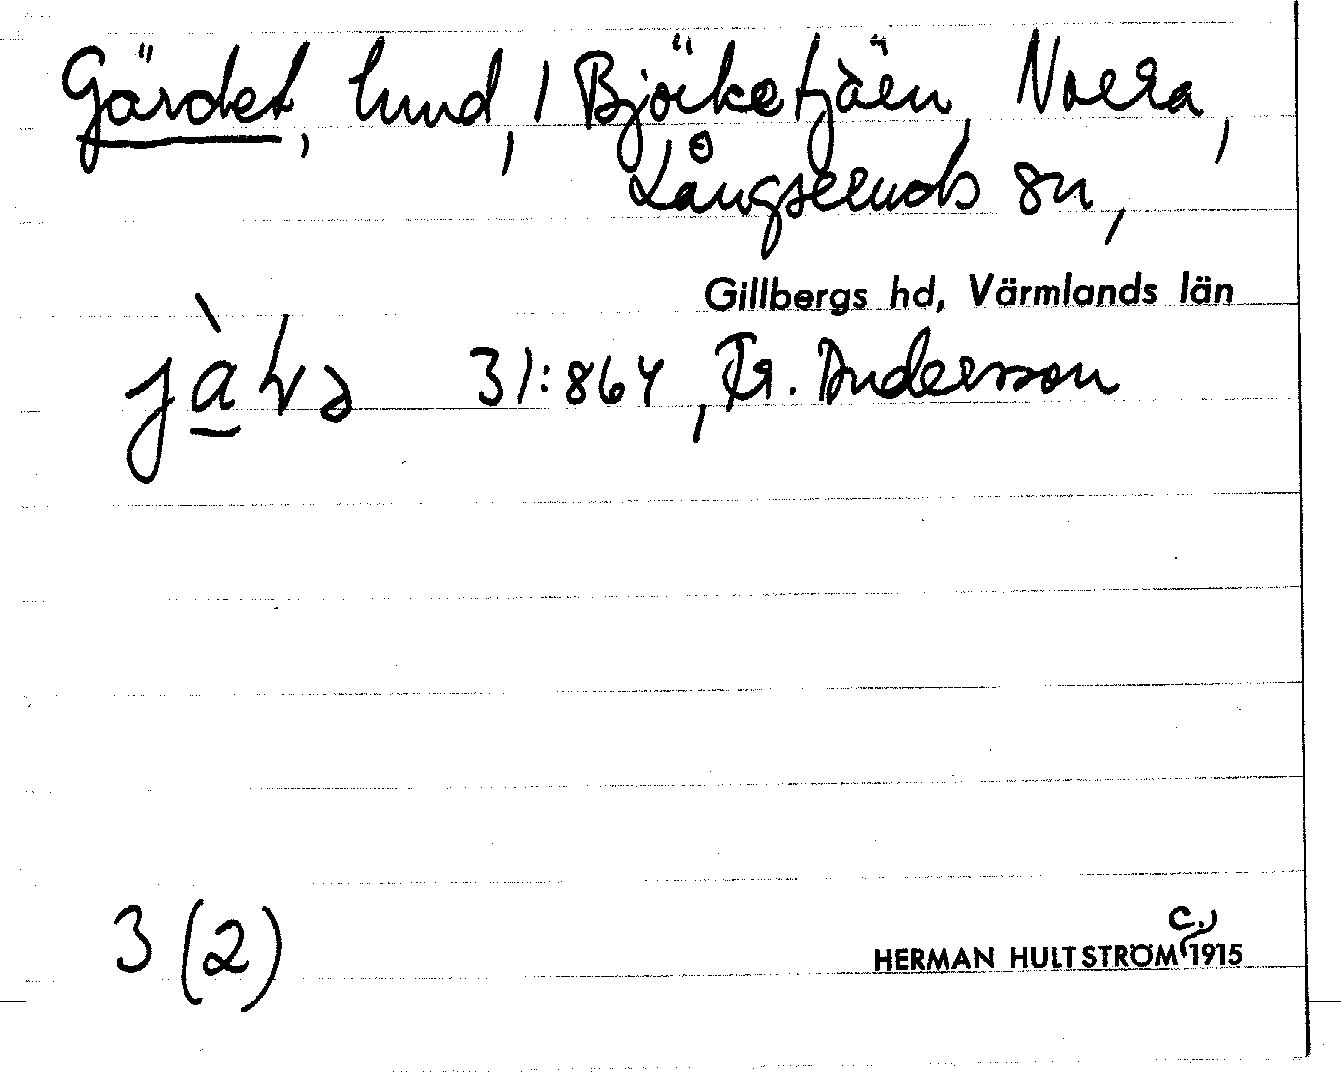 Gärdet, lund, i Björketjärn, Norra,
Långseruds sn,
Gillbergs hd, Värmlands län
31:864, Fr. Andersson
3 (2)
c.
HERMAN HULTSTRÖM 1915